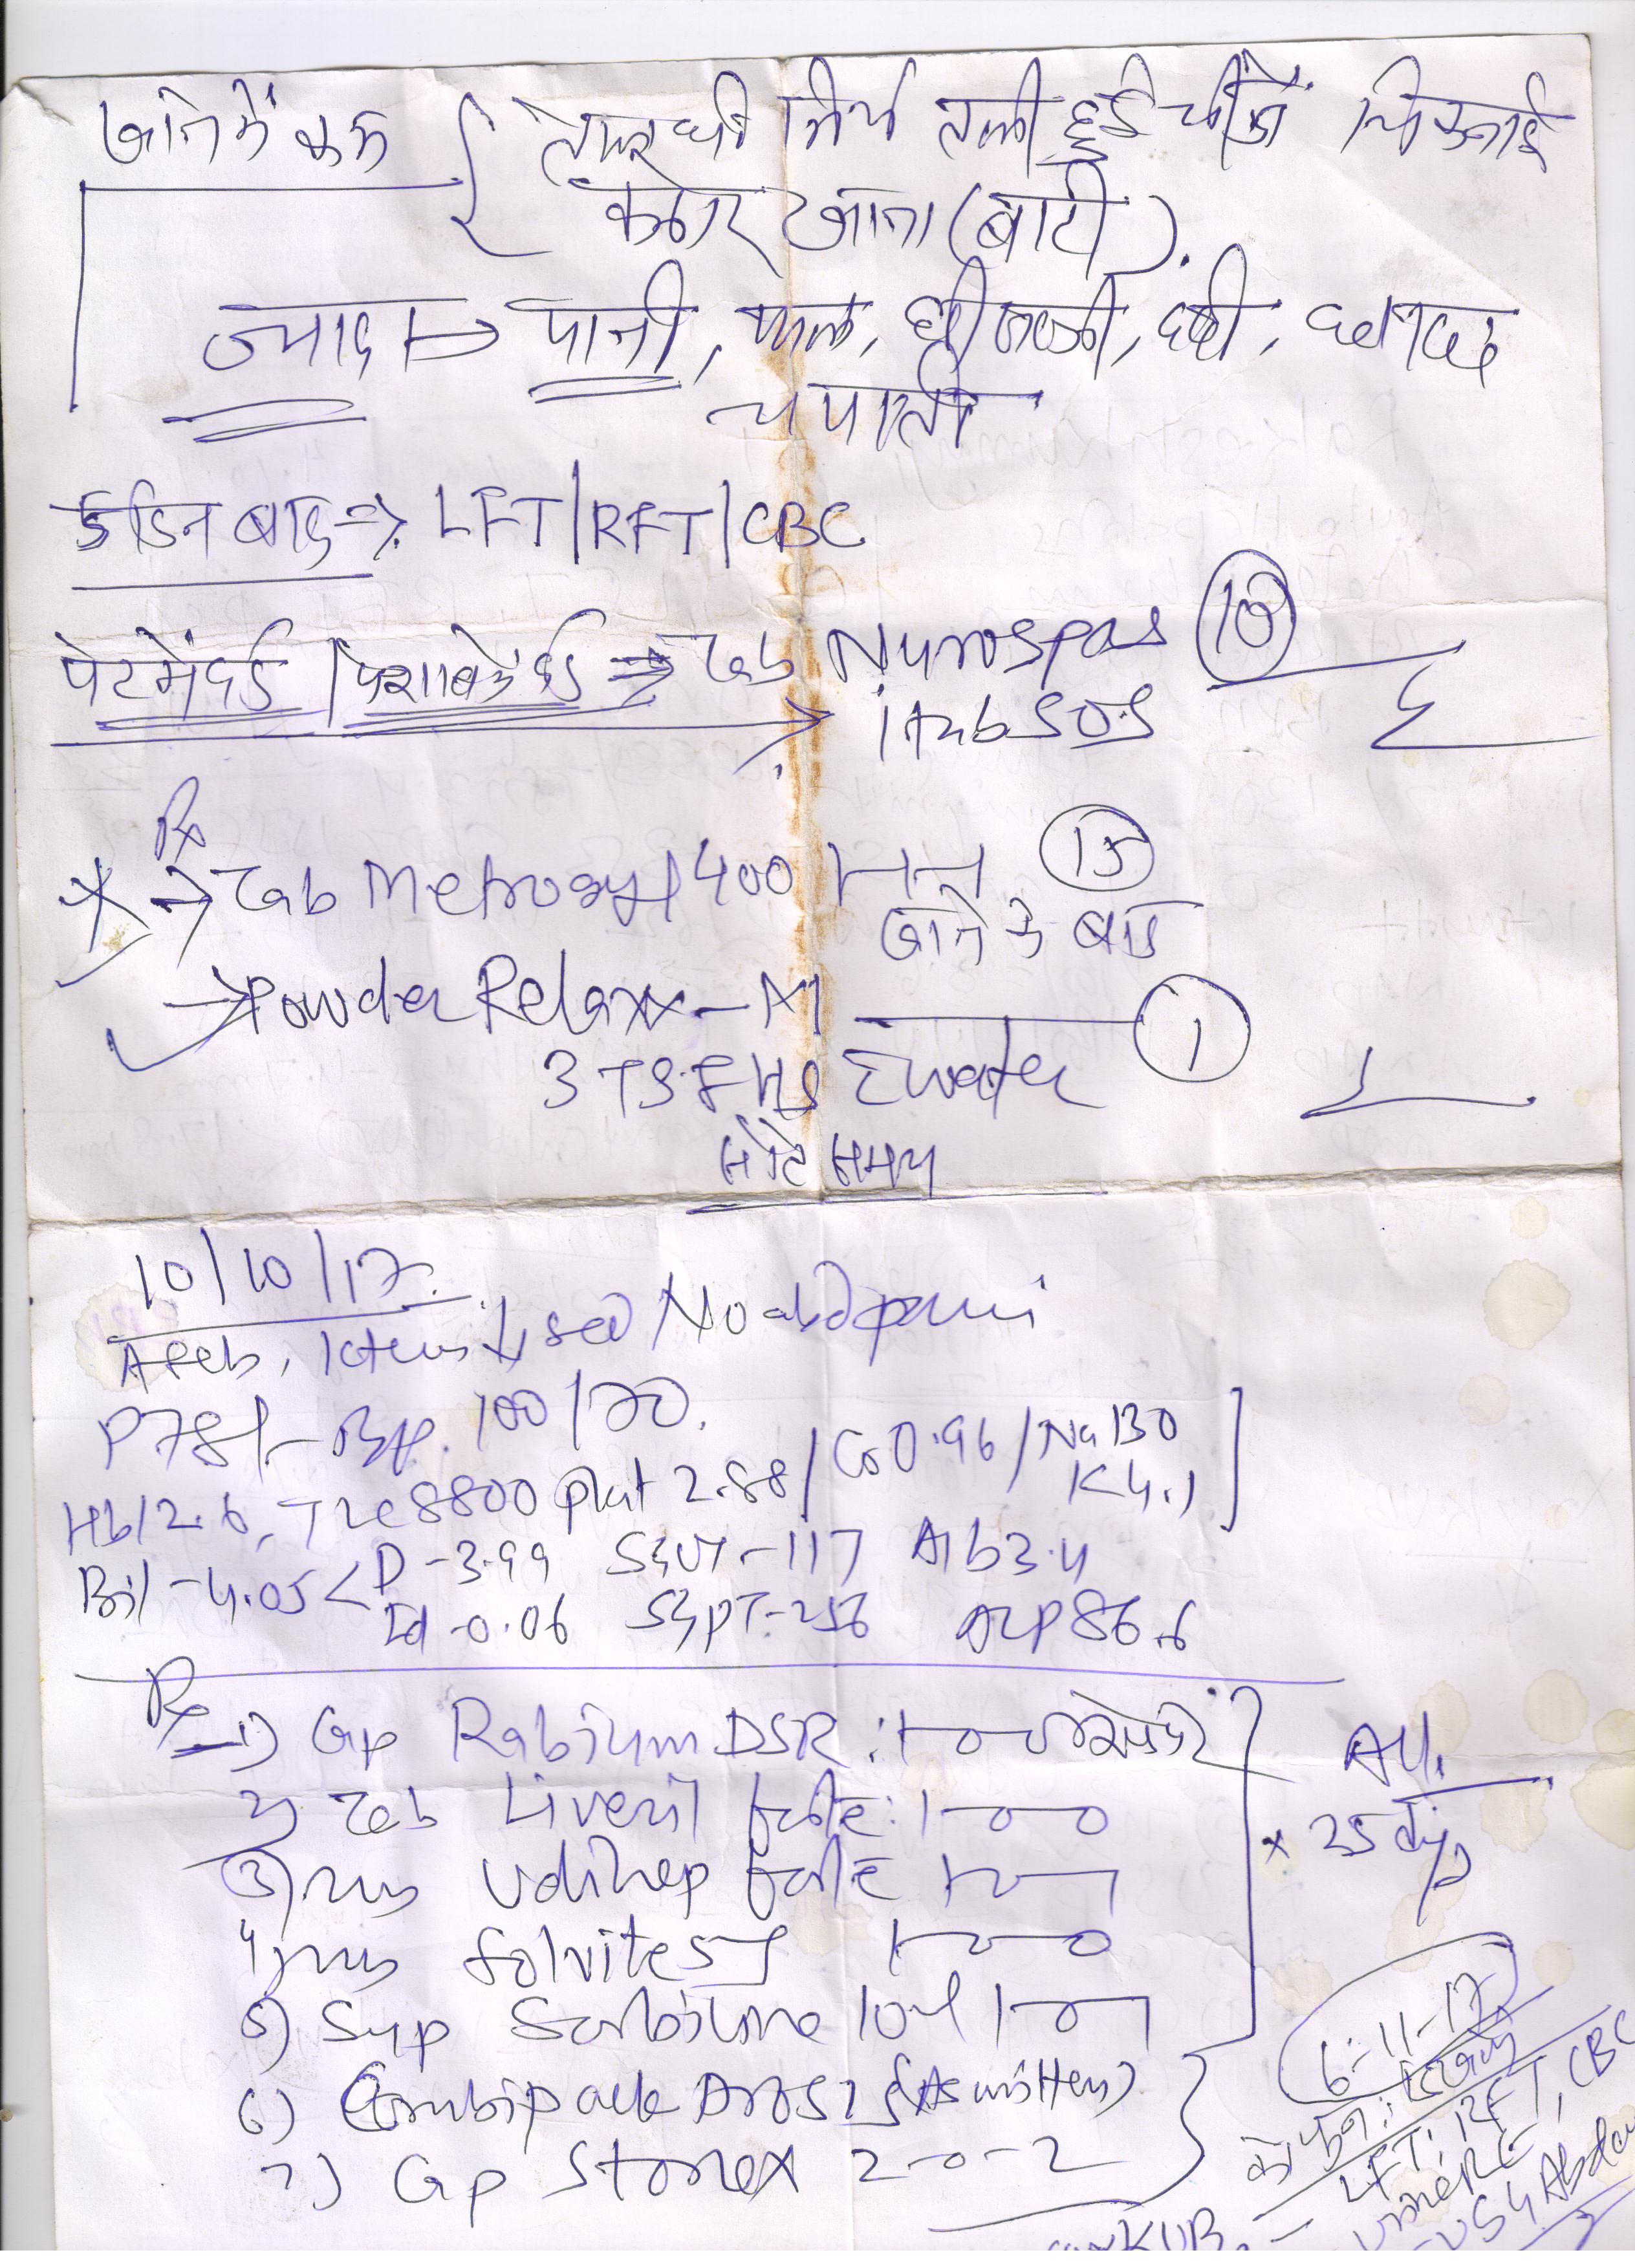 खाने में कम { तेल घी मिर्च तली हुई चीजें चिकनाई
कठोर खाना (बाटी).
ज्यादा → पानी, फल, हरी सब्जी, दही,
चपाती
दिन बाद => LFT/RFT/CBC
पेट में दर्द / पेशाब में दर्द => Tab Nurospas (10)
1 tab SOS
Rx
→ Tab Metrogyl 400 1-1-1 (15)
खाने के बाद
→ Powder Relaxx-M (1)
3 TSF HS c water
सोते समय
10/10/17.
Afeb, Icterus ↓sed No abd pain
P 78/- BP. 100/70.
Hb 12.6, TLC 8800 plat 2.88 / Cr 0.96 / Na 130
K 4.1
Bil - 4.05 < D - 3.99 SGOT - 117 Alb 3.4
Id - 0.06 SGPT - 256 ALP 86.6
Rx 1) Cap Rabium DSR : 1-0-0
2) Tab Liveril forte : 1-0-0
3) Tab Udihep forte 1-0-1
4) Tab Folvite 5 1-0-0
5) Syp Sorbiline 10ml 1-0-1
All.
x 25 days
6) Combipack (As written)
7) Cap Stonex 2-0-2
6-11-17
LFT, RFT, CBC
Urine RE,
USG Abdo
KUB.